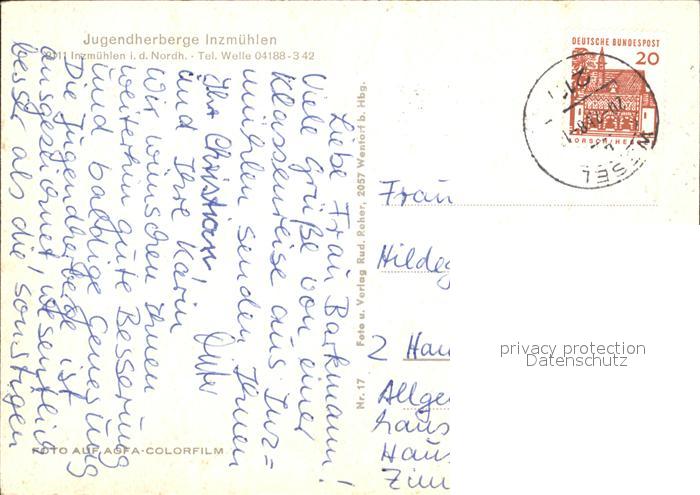 Jugendherberge Inzmühlen
2111 Inzmühlen i. d. Nordh. · Tel. Welle 04188-3 42
Liebe Frau Barkmann!
Viele Grüße von einer
Klassenreise aus Inz=
mühlen senden Ihnen
Ihr Christian
und Ihre Karin
Wir wünschen Ihnen
weiterhin gute Besserung
und baldige Genesung
Die Jugendherberge ist
ausgezeichnet, wesentlich
besser als die sonstigen
FOTO AUF AGFA-COLORFILM
Nr. 17 Foto u. Verlag Rud. Reher, 2057 Wentorf b. Hbg.
DEUTSCHE BUNDESPOST
20
LORSCH/HESSEN
Frau
Hildeg
2 Ham
Allge
Haus
privacy protection
Datenschutz